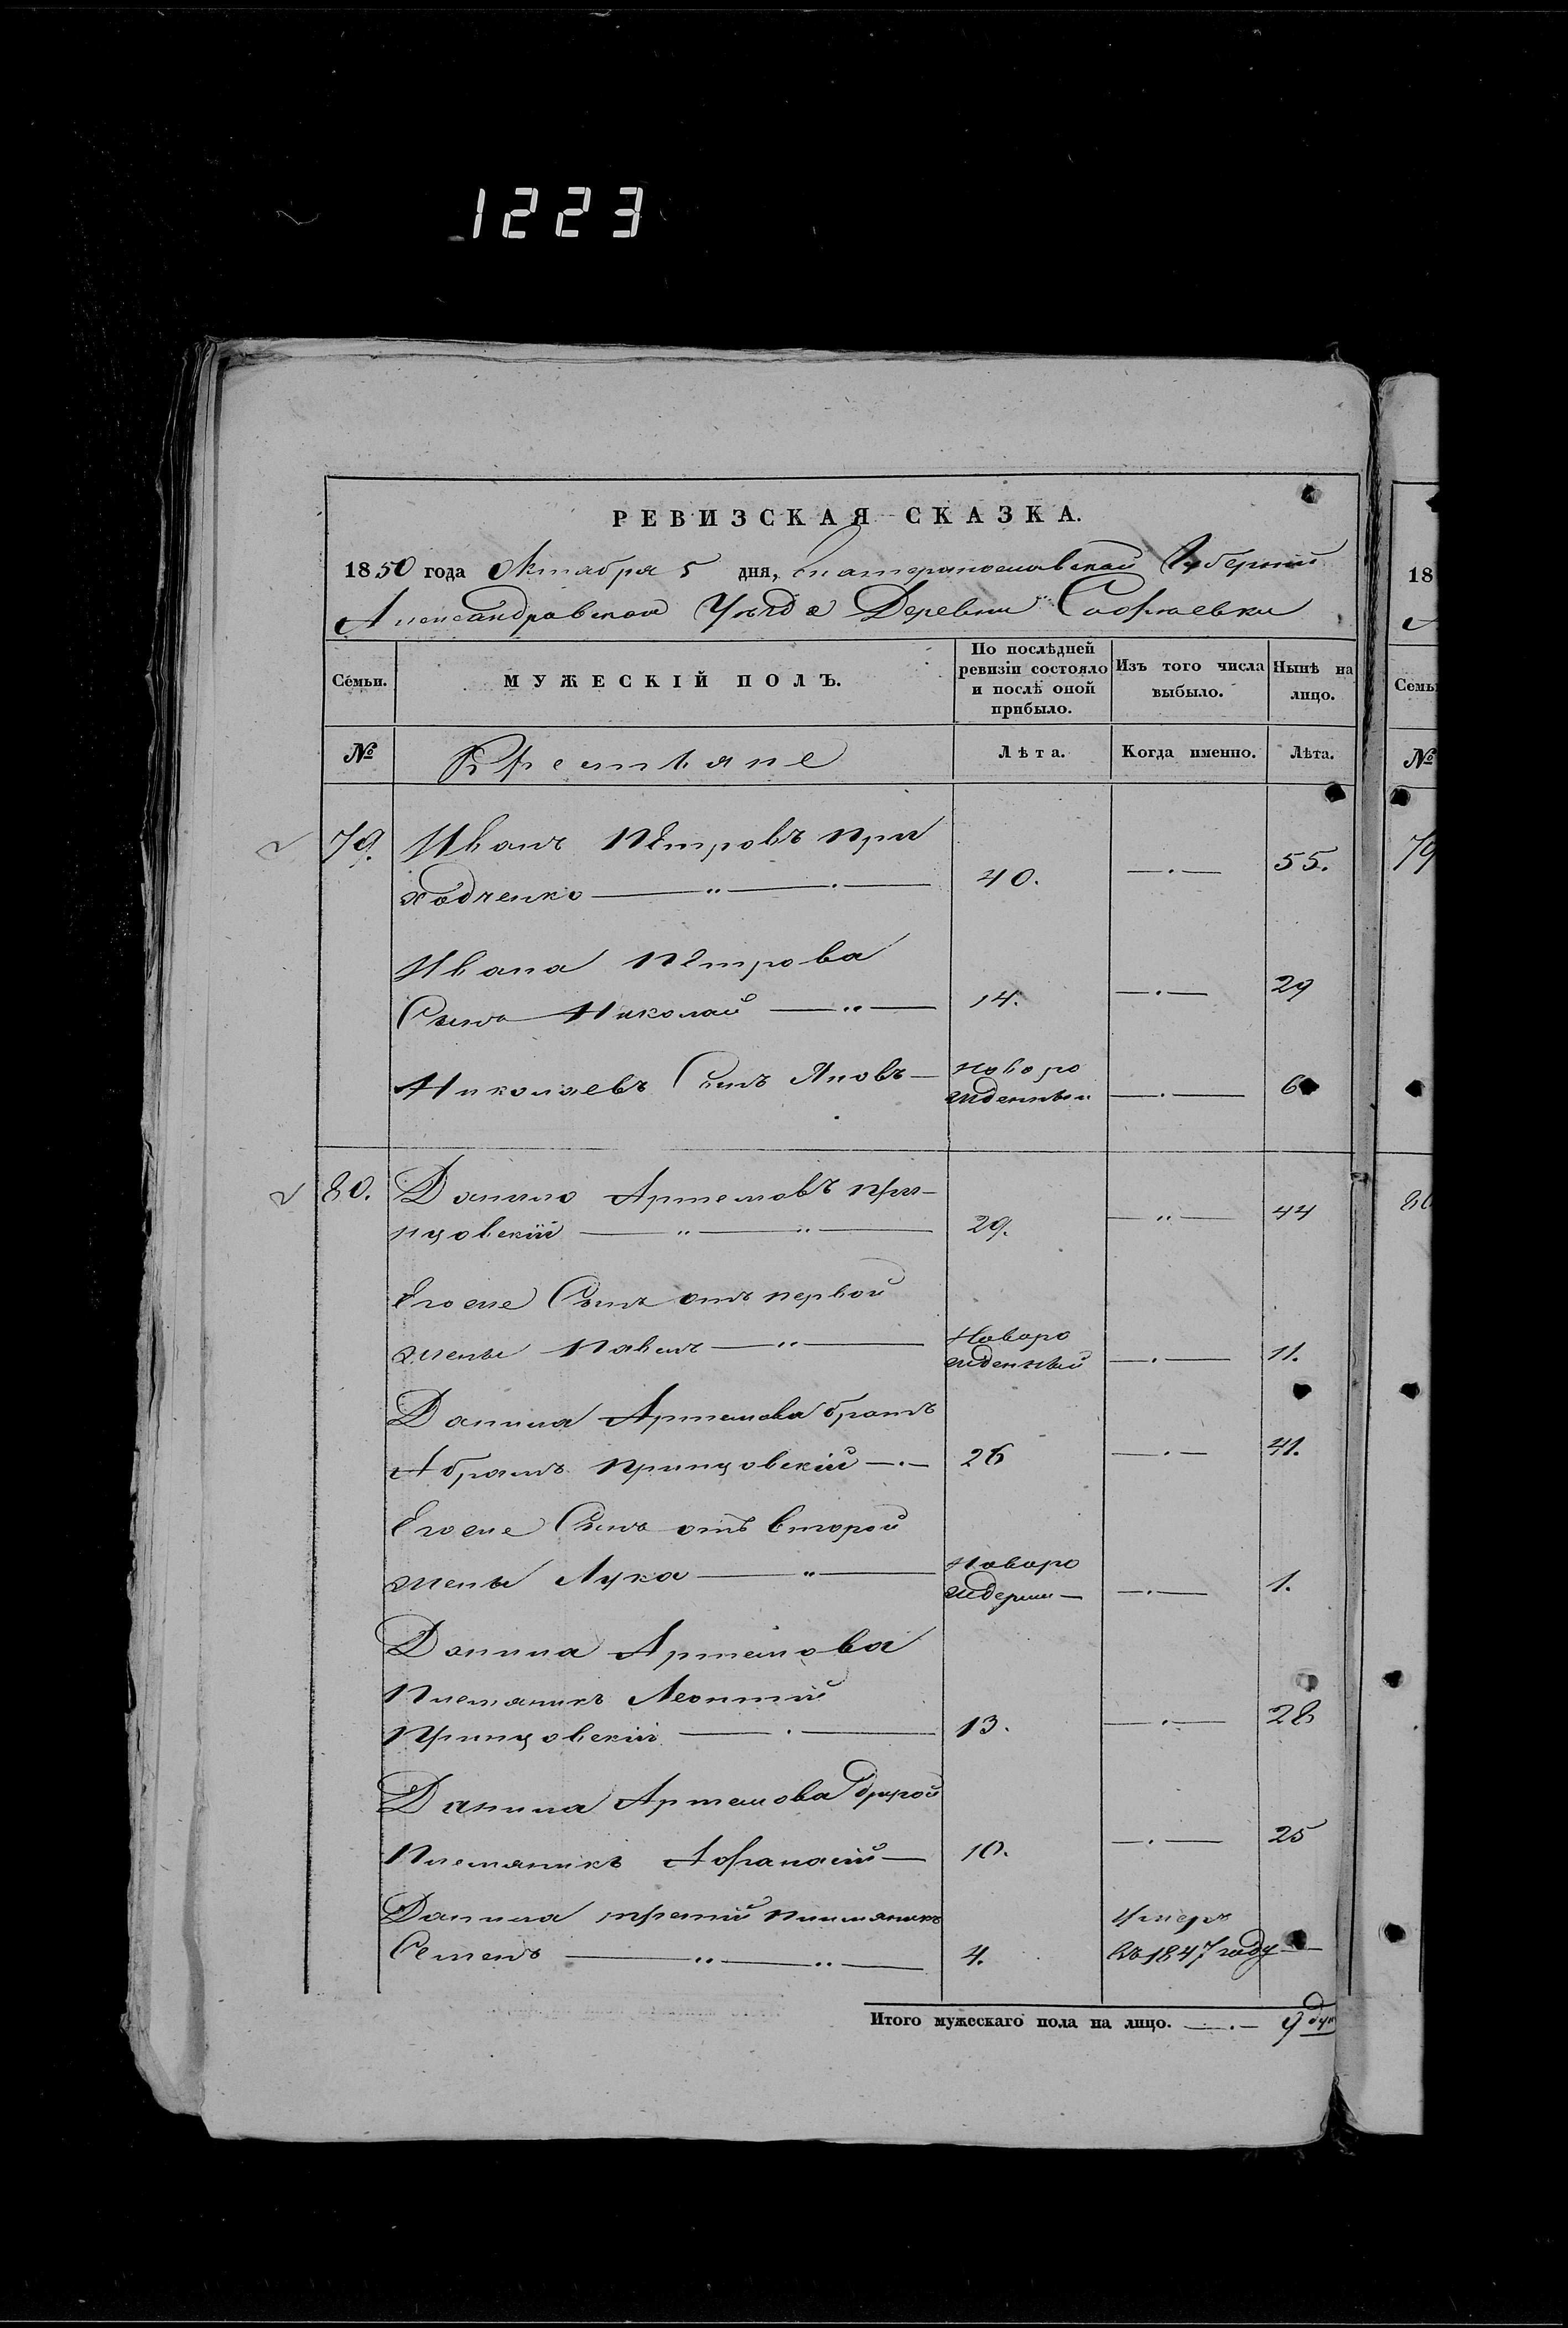 1223
РЕВИЗСКАЯ СКАЗКА.
1850 года Октября 5 дня, Екатеринославской Губерніи
Александровскаго Уезда Деревни Софіевки
Семьи. МУЖЕСКІЙ ПОЛЪ. По послѣдней ревизіи состояло и послѣ оной прибыло. Изъ того числа выбыло. Нынѣ на лицо.
№ Крестьяне Лѣта. Когда именно. Лѣта.
79. Иванъ Петровъ При
ходченко 40. 55.
Ивана Петрова
Сынъ Николай 14. 29
Николаевъ Сынъ Яковъ Новоро
жденный 6
80. Данило Артемовъ При-
нцовскій 29. 44
Егоже Сынъ отъ первой
жены Павелъ Новоро
жденный 11.
Данила Артемова братъ
Абрамъ Принцовскій 26 41.
Егоже Сынъ отъ второй
жены Лука Новоро
жденны 1.
Данила Артемова
Племяникъ Леонтий
Принцовскій 13. 28
Данила Артемова другой
Племяникъ Афанасий 10. 25
Данила третий племяникъ Умеръ
Семенъ 4. въ 1847 году
Итого мужескаго пола на лицо. 9 душ
18
Семь
№
79
80